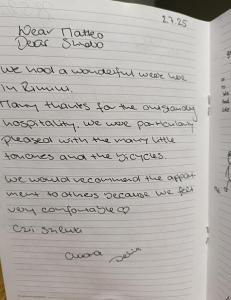 2.7.25
Dear Matteo
Dear
we had a wonderful week here
in Rimini.
Many thanks for the outstanding
hospitality. we were particularly
pleased with the many little
touches and the bicycles.
We would recommend the appart
ment to others because we felt
very comfortable ♡